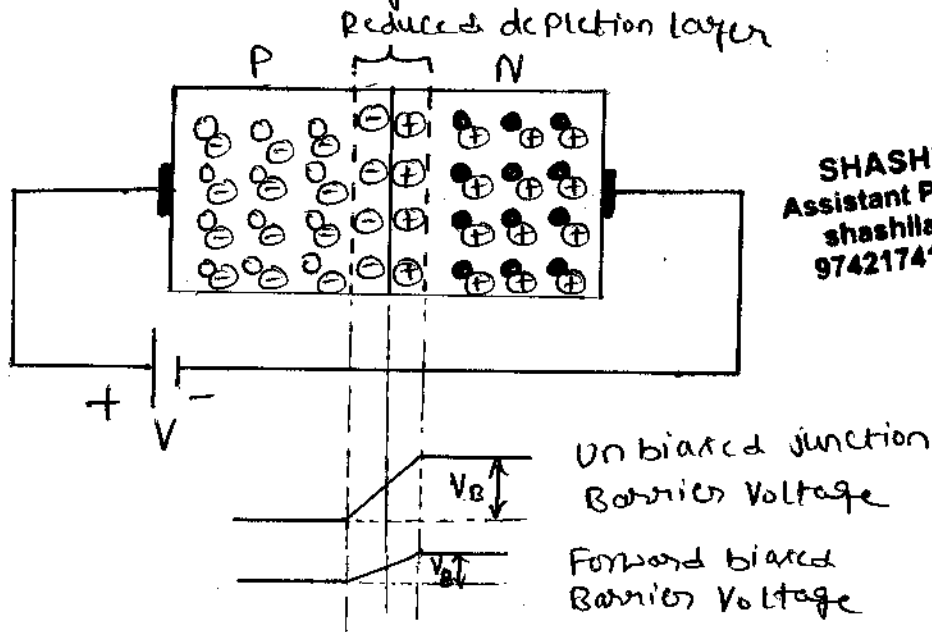 Reduced depletion layer
P
N
SHASHI
Assistant P
shashila
9742174
+
-
V
VB
Unbiased junction
Barrier Voltage
VB
Forward biased
Barrier Voltage